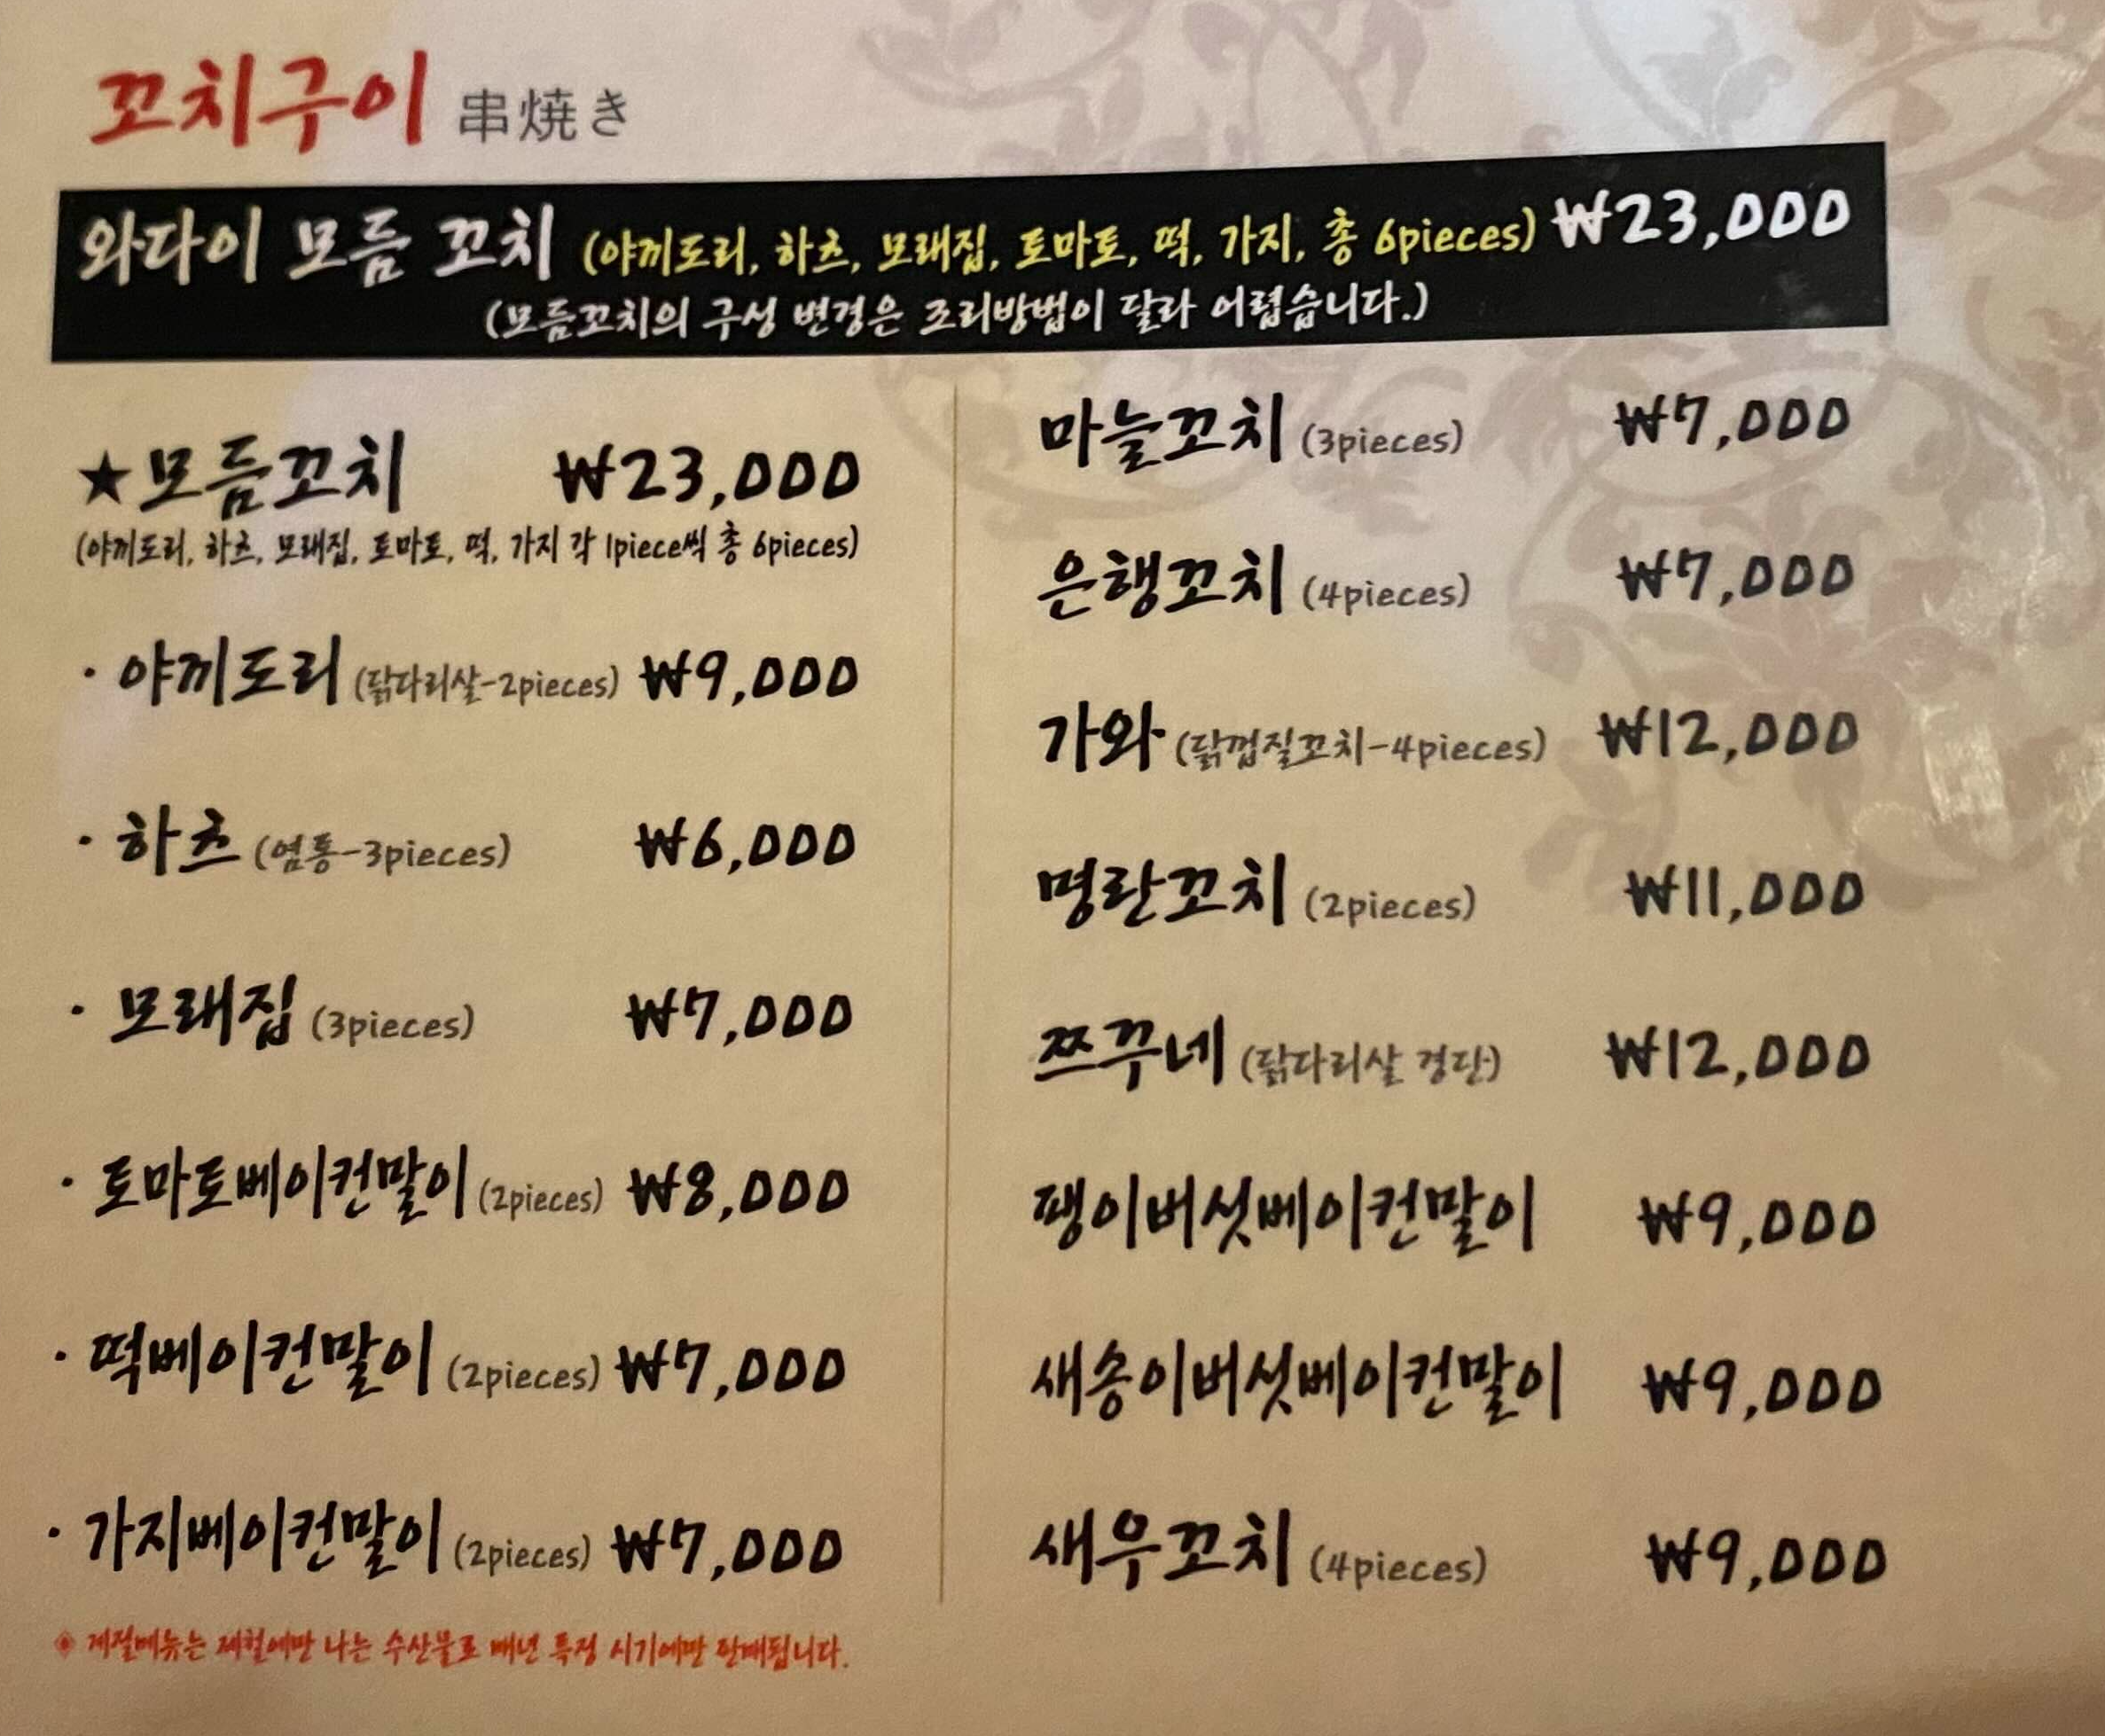 꼬치구이 串焼き
와다이 모듬 꼬치 (야끼도리, 하츠, 모래집, 토마토, 떡, 가지, 총 6pieces) ₩23,000
(모듬꼬치의 구성 변경은 조리방법이 달라 어렵습니다.)
★모듬꼬치 ₩23,000
(야끼도리, 하츠, 모래집, 토마토, 떡, 가지 각 1piece씩 총 6pieces)
· 야끼도리 (닭다리살-2pieces) ₩9,000
· 하츠 (염통-3pieces) ₩6,000
· 모래집 (3pieces) ₩7,000
· 토마토베이컨말이 (2pieces) ₩8,000
· 떡베이컨말이 (2pieces) ₩7,000
· 가지베이컨말이 (2pieces) ₩7,000
※ 계절메뉴는 제철에만 나는 수산물로 매년 특정 시기에만 판매됩니다.
마늘꼬치 (3pieces) ₩7,000
은행꼬치 (4pieces) ₩7,000
가와 (닭껍질꼬치-4pieces) ₩12,000
명란꼬치 (2pieces) ₩11,000
쯔꾸네 (닭다리살 경단) ₩12,000
팽이버섯베이컨말이 ₩9,000
새송이버섯베이컨말이 ₩9,000
새우꼬치 (4pieces) ₩9,000